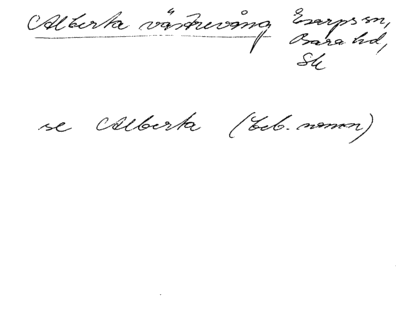 Alberta västrevång Esarps sn,
Bara hd,
Sk
se Alberta (beb. namn)